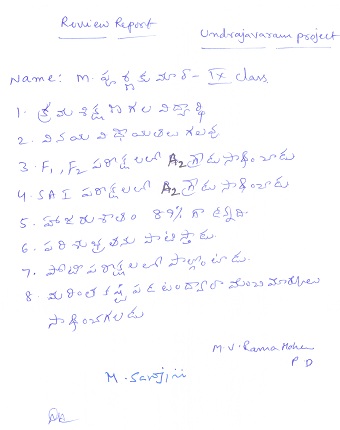 Review Report
Undrajavaram project
Name: M. పూర్ణ కుమార్ - IX class
1. క్రమశిక్షణ గల విద్యార్థి
2. వినయ విధేయతలు గలవు
3. F1, F2 పరీక్షలలో A2 గ్రేడు సాధించాడు
4. SA I పరీక్షలలో A2 గ్రేడు సాధించాడు
5. హాజరు శాతం 89% గా ఉన్నది.
6. పరిశుభ్రతను పాటిస్తాడు.
7. పోటీ పరీక్షలలో పాల్గొంటాడు.
8. మరింత కష్టపడటం ద్వారా మంచి మార్కులు
సాధించగలడు
M. V. Rama Mohan
P D
M. Sarojini